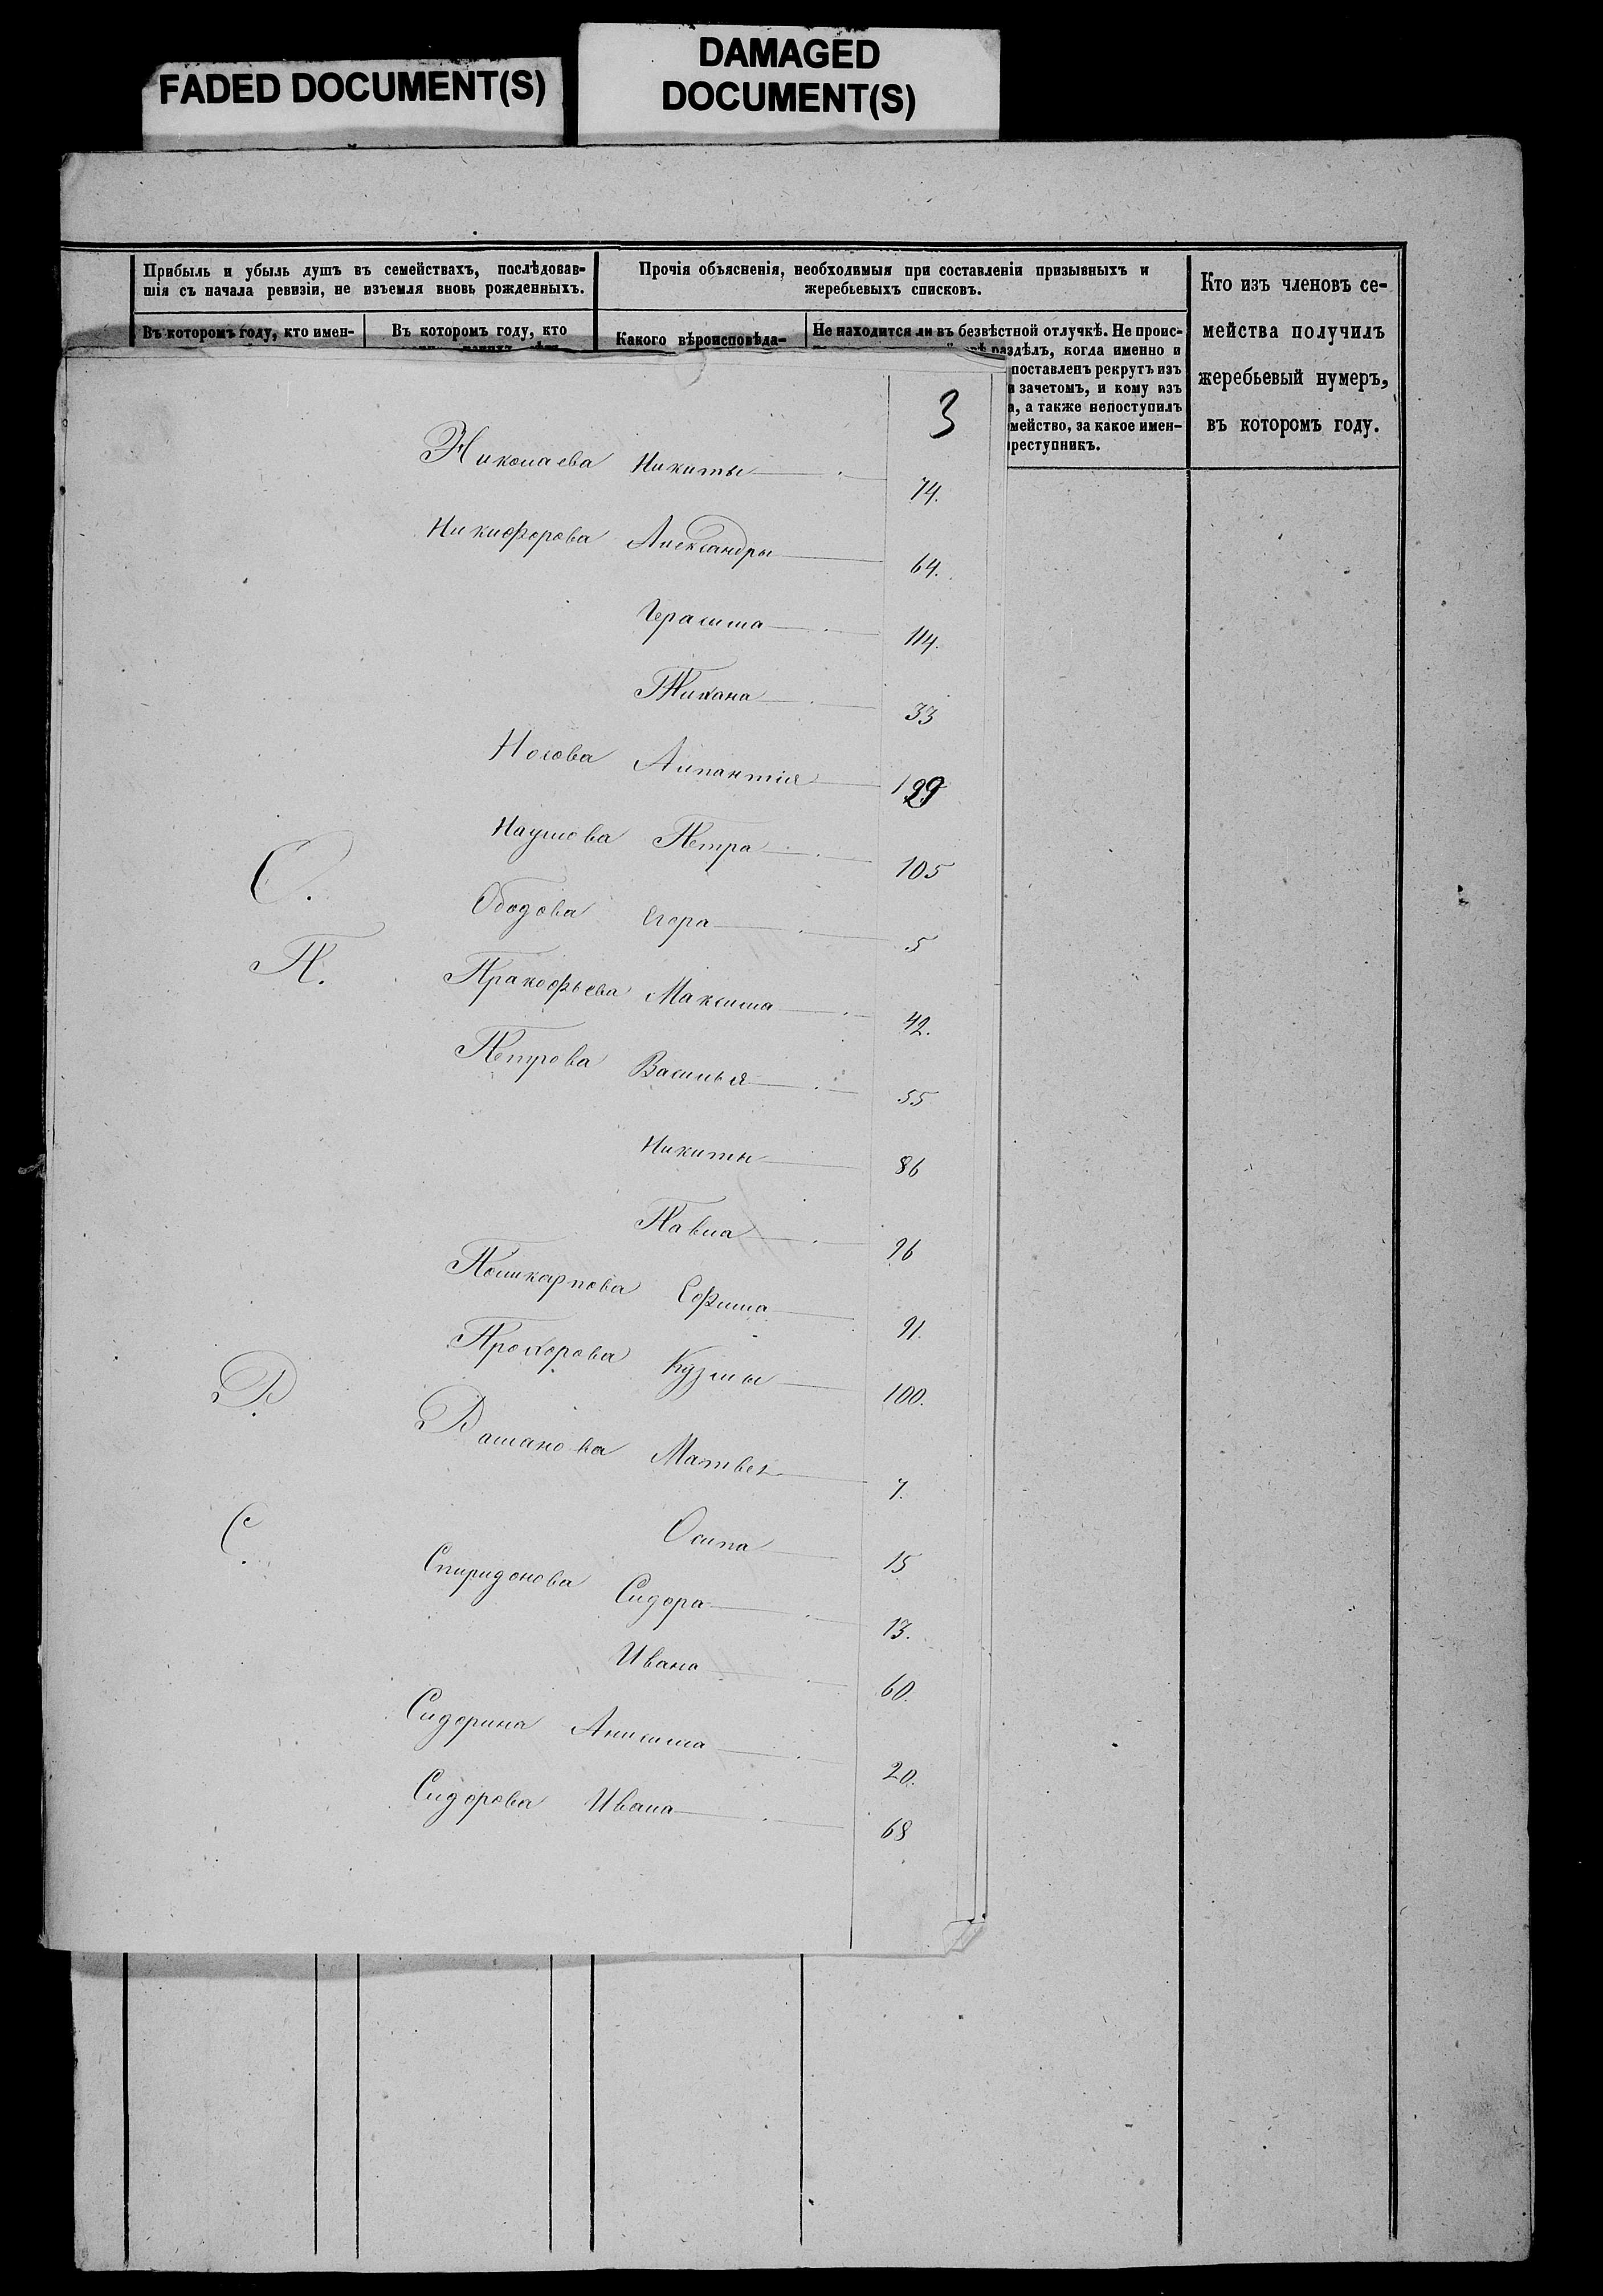 FADED DOCUMENT(S)
DAMAGED
DOCUMENT(S)
Прибыль и убыль душъ въ семействахъ, послѣдовав-
шія съ начала ревизіи, не изъемля вновь рожденныхъ.
Въ которомъ году, кто имен-
Въ которомъ году, кто
Прочія объясненія, необходимыя при составленіи призывныхъ и
жеребьевыхъ списковъ.
Какого вѣроисповѣда-
Не находится ли въ безвѣстной отлучкѣ. Не проис-
раздѣлъ, когда именно и
поставленъ рекрутъ изъ
зачетомъ, и кому изъ
а, а также непоступилъ
мейство, за какое имен-
реступникъ.
Кто изъ членовъ се-
мейства получилъ
жеребьевый нумеръ,
въ которомъ году.
3
Николаева Никиты 74.
Никифорова Александры 64.
Герасима 114.
Тихана 33
Носова 129
Наумова Петра 105
О.
Ободова Егора 5
П.
Пракофьева Максима 42.
Петрова Василья 55
Никиты 86
Павла 96
Поликарпова Ефима 91.
Прохорова Кузмы 100.
Р.
Рашанова Матвея 7.
Осипа 15
С.
Спиридонова Сидора 13.
Ивана 60.
Сидорина Анисима 20.
Сидорова Ивана 68